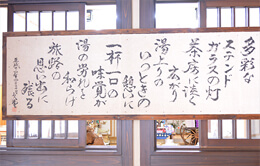 多彩な
ステンド
グラスの灯
茶房に淡く
広がり
湯上りの
いっときの
憩いに
一杯一口の
味覚が
湯の労れを
和らげ
旅路の
思い出に
綴る